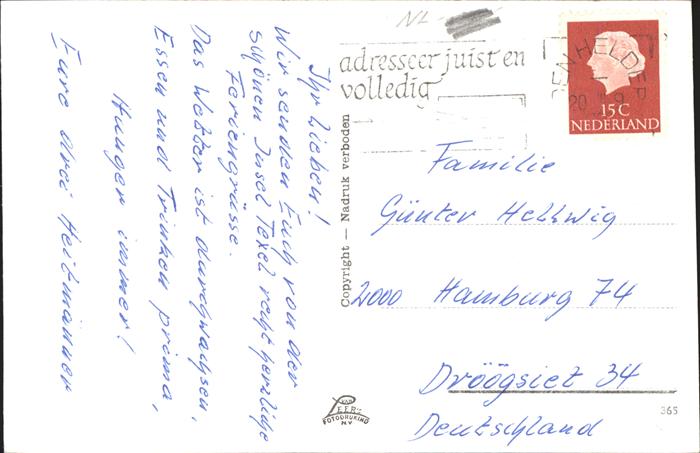 Ihr Lieben!
Wir senden Euch von der
schönen Insel Texel recht herzliche
Feriengrüsse.
Das Wetter ist durchwachsen,
Essen und Trinken prima,
Hunger immer!
Eure drei Heitmänner
Copyright — Nadruk verboden
NL-
adresseer juist en
volledig
DEN HELDER
20
15C
NEDERLAND
Familie
Günter Hellwig
2000 Hamburg 74
Dröögsiet 34
Deutschland
VAN
LEER'S
FOTODRUKIND
N.V.
365